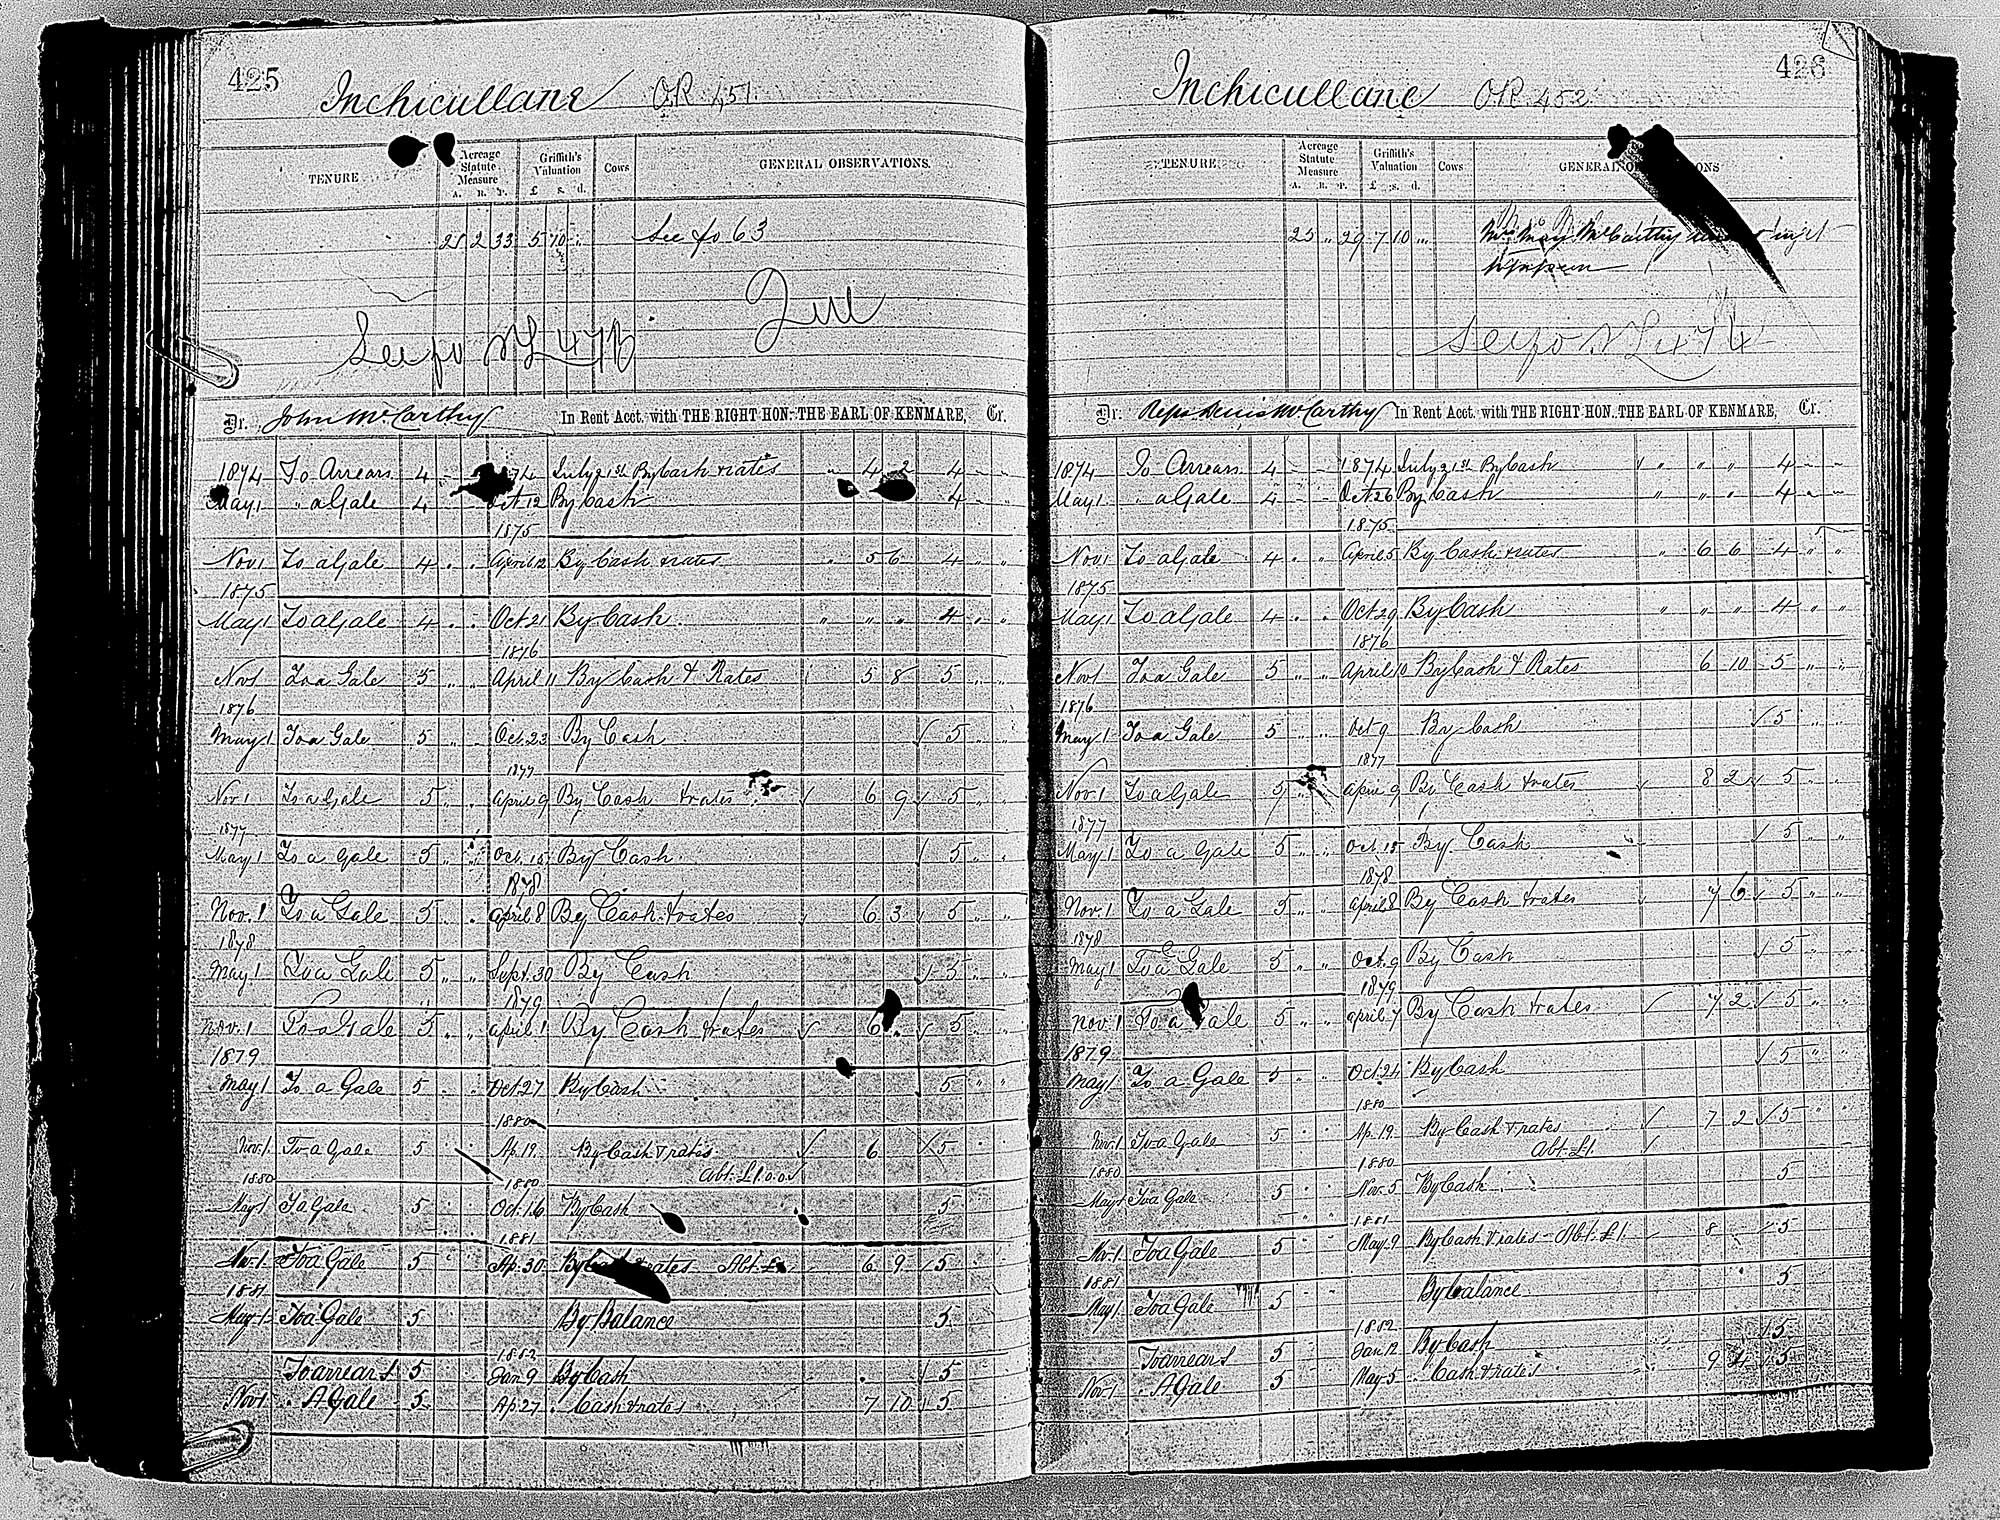 425
Inchicullane OR 451
TENURE
Acreage Statute Measure
A. R. P.
Griffith's Valuation
£ s. d.
Cows
GENERAL OBSERVATIONS.
2 33 5 10 "
See fo 63
See fo NL 47
Dr. John McCarthy In Rent Acct. with THE RIGHT HON. THE EARL OF KENMARE, Cr.
1874 To Arrears 4 - - 74 July 21st By Cash & rates " 4 2 4 - -
May 1 " a Gale 4 - Oct 12 By Cash 4 - -
1875
Nov 1 To a Gale 4 " " April 12 By Cash & rates " 5 6 4 " "
1875
May 1 To a Gale 4 " " Oct 21 By Cash " " " 4 " "
1876
Nov 1 To a Gale 5 " " April 11 By Cash & Rates 5 8 5 " "
1876
May 1 To a Gale 5 " " Oct. 23 By Cash √ 5 " "
1877
Nov 1 To a Gale 5 " " April 9 By Cash & rates √ 6 9 √ 5 " "
1877
May 1 To a Gale 5 " " Oct. 15 By Cash √ 5 " "
1878
Nov. 1 To a Gale 5 " " April 8 By Cash & rates √ 6 3 √ 5 " "
1878
May 1 To a Gale 5 " " Sept. 30 By Cash √ 5 " "
1879
Nov. 1 To a Gale 5 " " April 1 By Cash & rates √ 6 " √ 5 " "
1879
May 1 To a Gale 5 " " Oct 27 By Cash √ 5 " "
1880
Nov. 1 To a Gale 5 Ap. 19 By Cash & rates √ 6 √ 5 " "
1880 1880 Abt. £1.0.0 √
May 1 To a Gale 5 Oct. 16 By Cash 5
1881
Nov. 1 To a Gale 5 Ap. 30 By rates Abt. 6 9 √ 5
1881
May 1 To a Gale 5 By Balance 5
1882
To arrears 5 Jan 9 By Cash √ 5
Nov 1 " A Gale 5 Ap 27 " Cash & rates 7 10 √ 5
426
Inchicullane OR 452
TENURE
Acreage Statute Measure
A. R. P.
Griffith's Valuation
£ s. d.
Cows
GENERAL
25 " 29 7 10 "
Mrs Mary McCarthy
See fo NL 474
Dr. Reps Denis McCarthy In Rent Acct. with THE RIGHT HON. THE EARL OF KENMARE, Cr.
1874 To Arrears 4 - - 1874 July 21st By Cash √ " " " 4 - -
May 1 " a Gale 4 - - Oct 26 By Cash " " " 4 " -
1875
Nov 1 To a Gale 4 " " April 5 By Cash & rates " 6 6 4 " "
1875
May 1 To a Gale 4 " " Oct 29 By Cash " " " 4 " "
1876
Nov 1 To a Gale 5 " " April 10 By Cash & Rates 6 10 5 " "
1876
May 1 To a Gale 5 " " Oct 9 By Cash √ 5 " "
1877
Nov 1 To a Gale 5 " April 9 By Cash & rates √ 8 2 √ 5 " "
1877
May 1 To a Gale 5 " " Oct. 15 By Cash √ 5 " "
1878
Nov. 1 To a Gale 5 " " April 8 By Cash & rates √ 7 6 √ 5 " "
1878
May 1 To a Gale 5 " " Oct. 9 By Cash √ 5 " "
1879
Nov. 1 To a Gale 5 " " April 7 By Cash & rates √ 7 2 √ 5 " "
1879
May 1 To a Gale 5 " " Oct. 24 By Cash √ 5 " "
1880
Nov. 1 To a Gale 5 " " Ap. 19 By Cash & rates √ 7 2 √ 5 " "
1880 1880 Abt. £1. √
May 1 To a Gale 5 " " Nov. 5 By Cash 5
1881
Nov. 1 To a Gale 5 " " May 9 By Cash & rates - Abt. £1. √ 8 - √ 5
1881
May 1 To a Gale 5 By balance 5
1882
To arrears 5 Jan 12 By Cash √ 5
Nov 1 " A Gale 5 May 5 " Cash & rates 9 4 √ 5